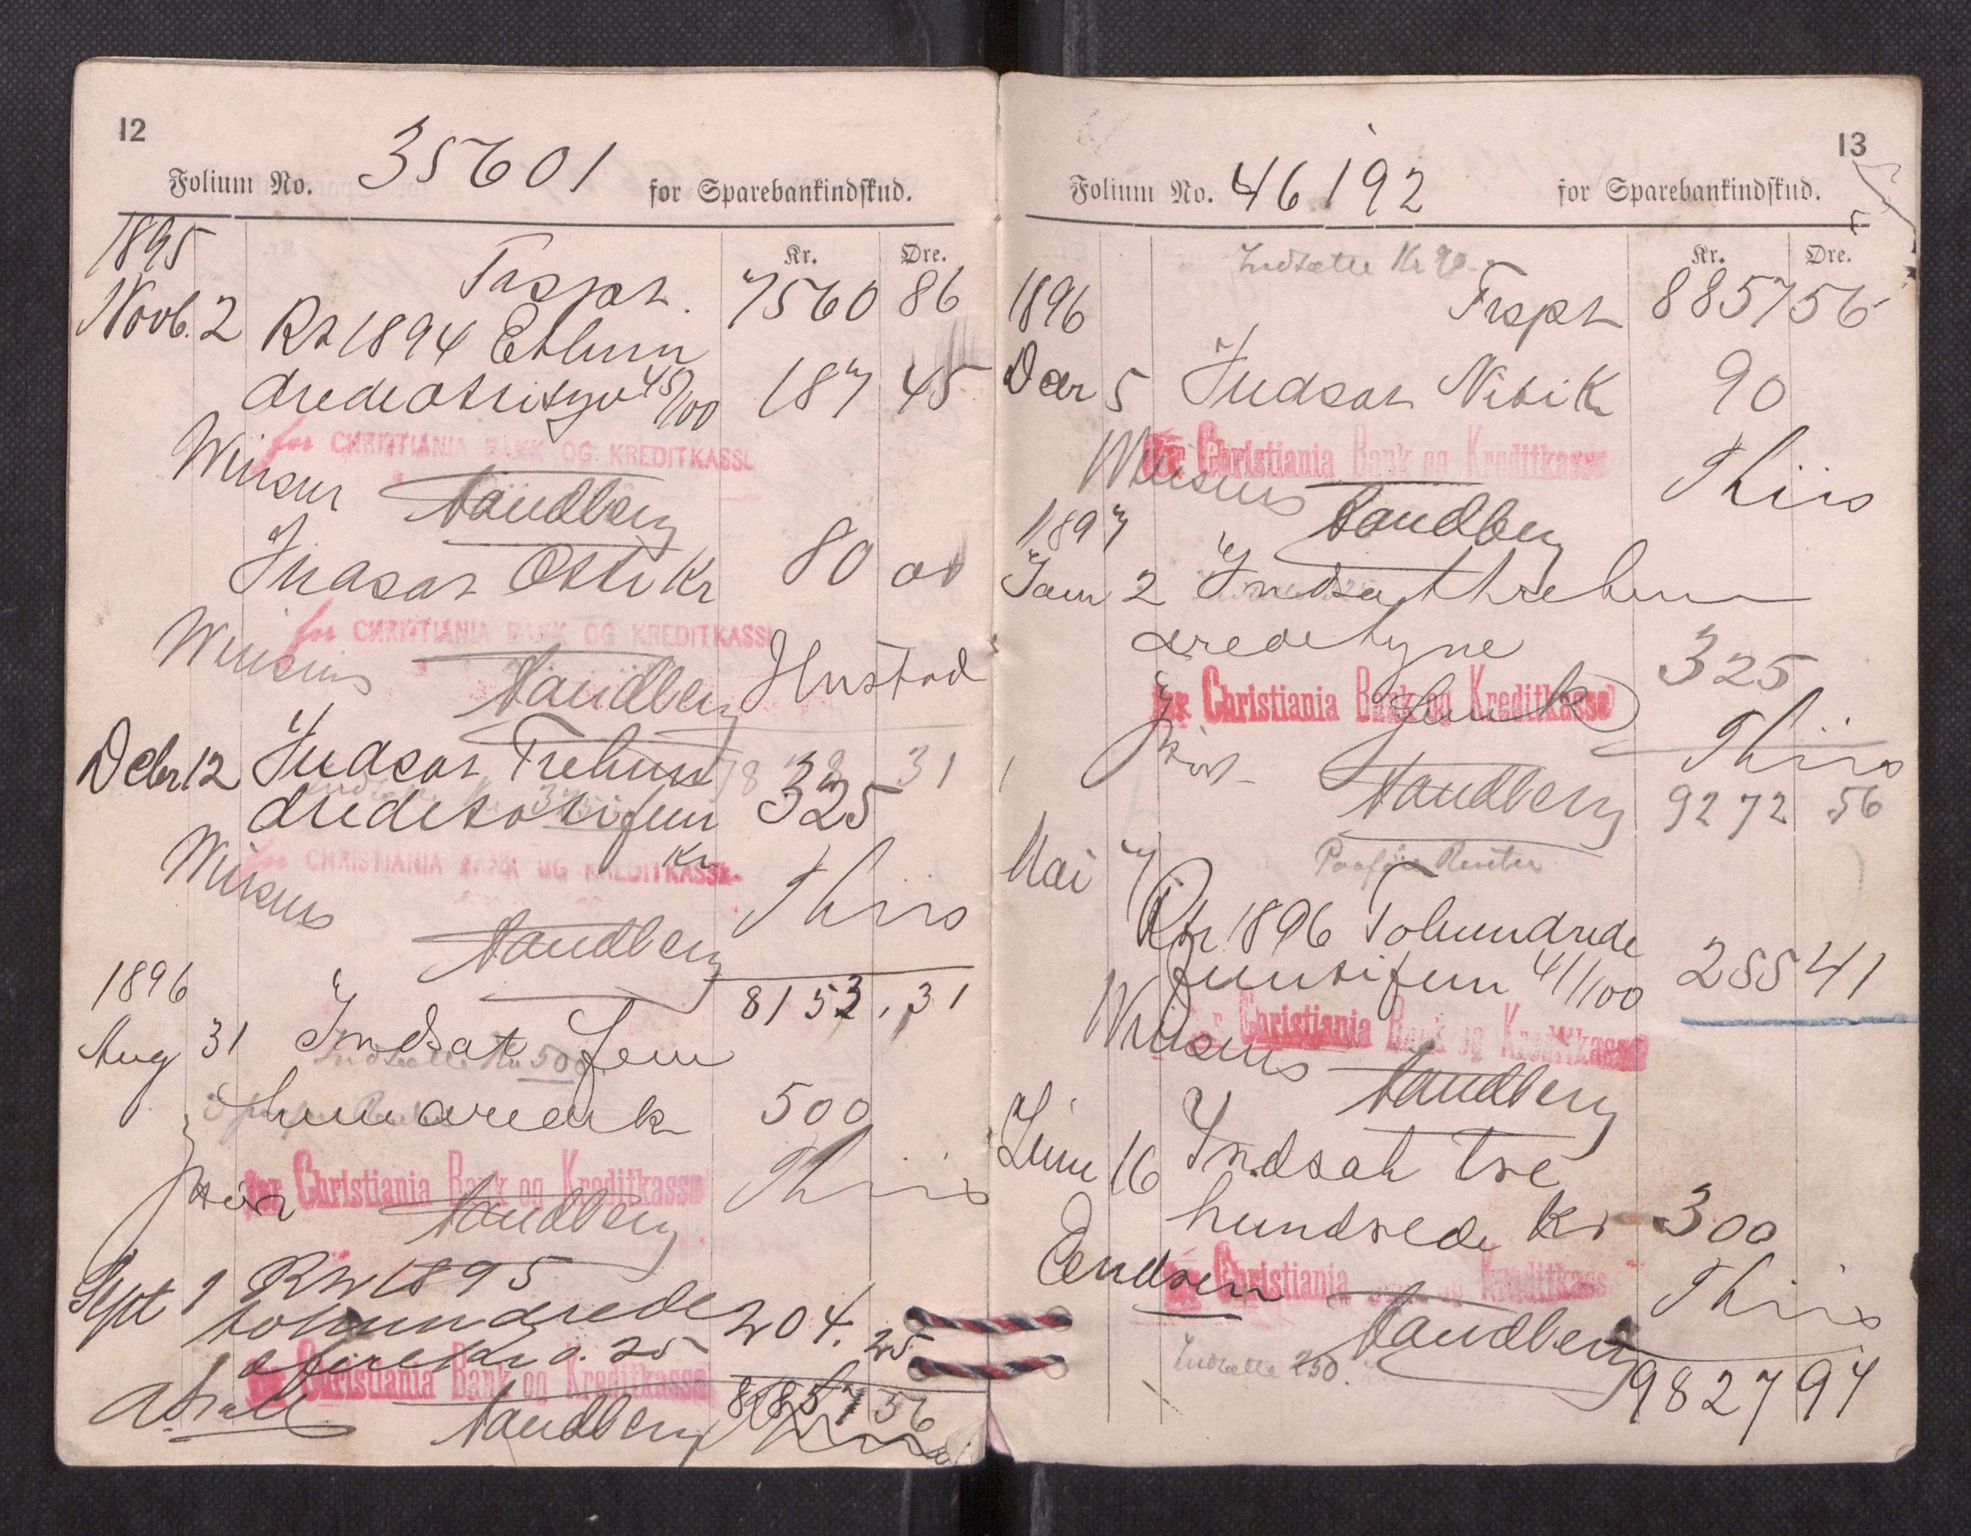 12
Folium No. 35601 for Sparebankindskud.
1895
Kr. Øre.
Trspt. 7560 86
Novb. 2 Rt 1894 Ethun
dredeotrisyv 45/100 187 45
for CHRISTIANIA BANK OG KREDITKASSE
Sandberg
Indsat Otti Kr 80 00
for CHRISTIANIA BANK OG KREDITKASSE
Sandberg Hustad
31
Debr 12 Indsat Trehun
dredetotifem 325
Kr
for CHRISTIANIA BANK OG KREDITKASSE
Thiis
Sandberg
1896
8153.31
Aug 31 Indsat fem
Indsætte Kr 500
hundrede k 500
for Christiania Bank og Kreditkasse
Thiis
Sandberg
Sept 1 Rt 1895
tohundrede 204. 25
ofire Kr o. 25
for Christiania Bank og Kreditkasse
Sandberg
8857 56
13
Folium No. 46192 for Sparebankindskud.
Kr. Øre.
Indsætte Kr 90.
1896 Trspt 8857 56
Debr 5 Indsat Niti K 90
for Christiania Bank og Kreditkasse
Thiis
Sandberg
1897
Jan 2 Indsat trehun
dredetyne 325
for Christiania Bank og Kreditkasse
fem K
Thiis
Sandberg
9272 56
Paaføre Renter
Mai 7
Rt 1896 Tohundrede
femtifem 41/100 255 41
for Christiania Bank og Kreditkasse
Sandberg
Juni 16 Indsat tre
hundrede Kr 300
for Christiania Bank og Kreditkasse
Thiis
Sandberg
Indsætte 250.
9827 97